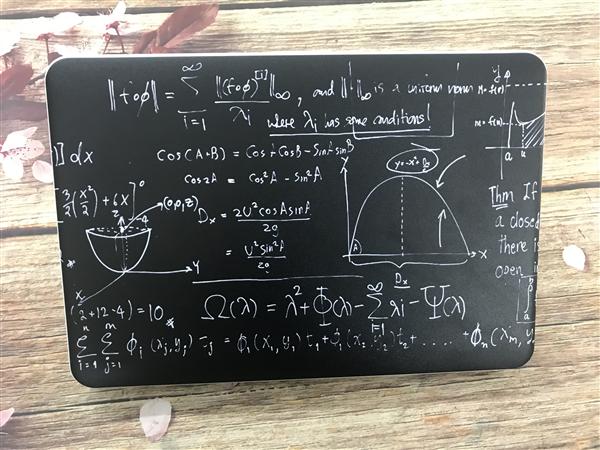 ‖f∘φ‖ = ∑_{i=1}^{∞} ‖(f∘φ)^{[i]}‖_∞ / λ_i , and ‖ ‖_∞ is a uniform norm
where λ_i has some conditions!
M=f(x)
m=f(u)
a u
y
] dx
Cos(A+B) = CosA CosB - SinA SinB
cos2A = cos²A - sin²A
y=-x²+D_x
y
x
A
D_x
3/2 (x²/2) + 6x ]⁰
z
-4
(0,0,z)
y
x
D_x = 2U²cosAsinA / 2g
= U²sin²A / 2g
Thm If
a closed
there is
open in
∫_a^b
(2+12-4) = 10
Ω(λ) = λ² + Φ(λ) - ∑_{i=1}^{∞} λi - Ψ(λ)
∑_{i=1}^{n} ∑_{j=1}^{m} φ_i (x_j, y_j) τ_j = φ_1(x_1, y_1) τ_1 + φ_1(x_2, y_2) τ_2 + ..... + φ_n(x_m, y